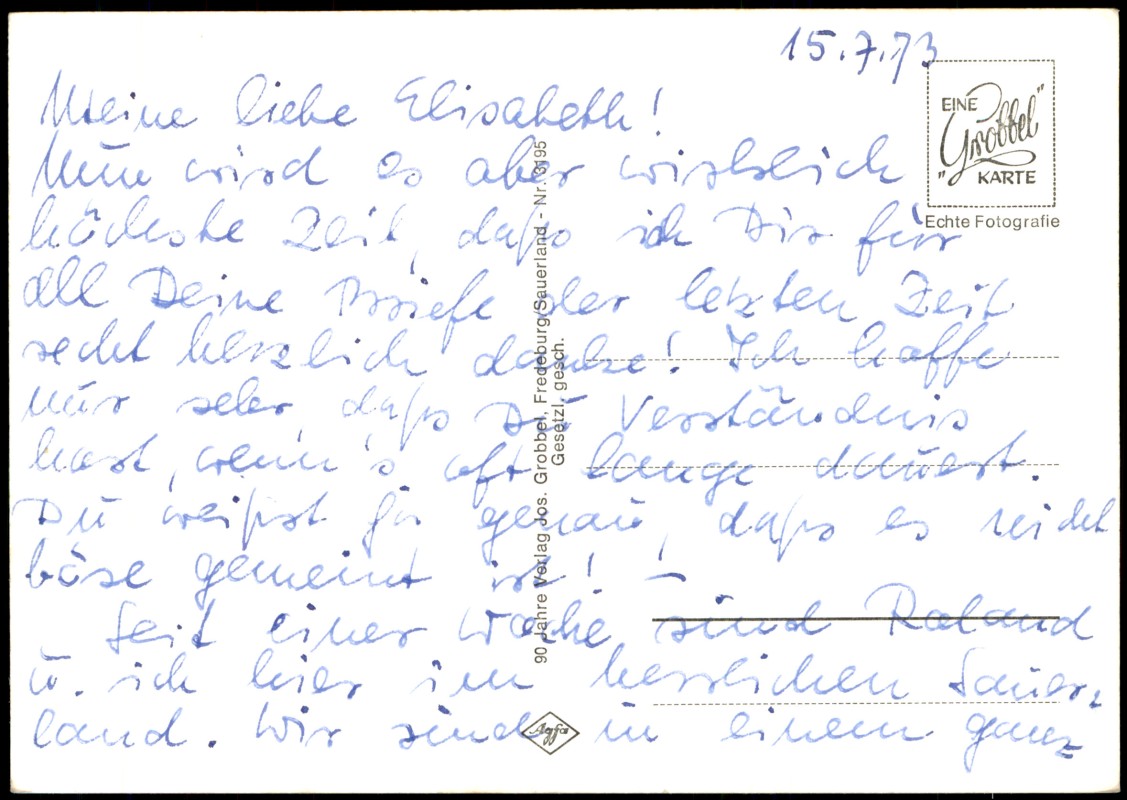 15.7.73
EINE
"Grobbel"
KARTE
Echte Fotografie
Meine liebe Elisabeth!
Nun wird es aber wirklich
höchste Zeit, daß ich Dir für
all Deine Briefe der letzten Zeit
recht herzlich danke! Ich hoffe
nur sehr, daß Du Verständnis
hast, wenn's oft lange dauert.
Du weißt ja genau, daß es nicht
böse gemeint ist! –
Seit einer Woche sind Roland
u. ich hier im herrlichen Sauer=
land. Wir sind in einem ganz
90 Jahre Verlag Jos. Grobbel, Fredeburg/Sauerland - Nr. 3195
Gesetzl. gesch.
Agfa